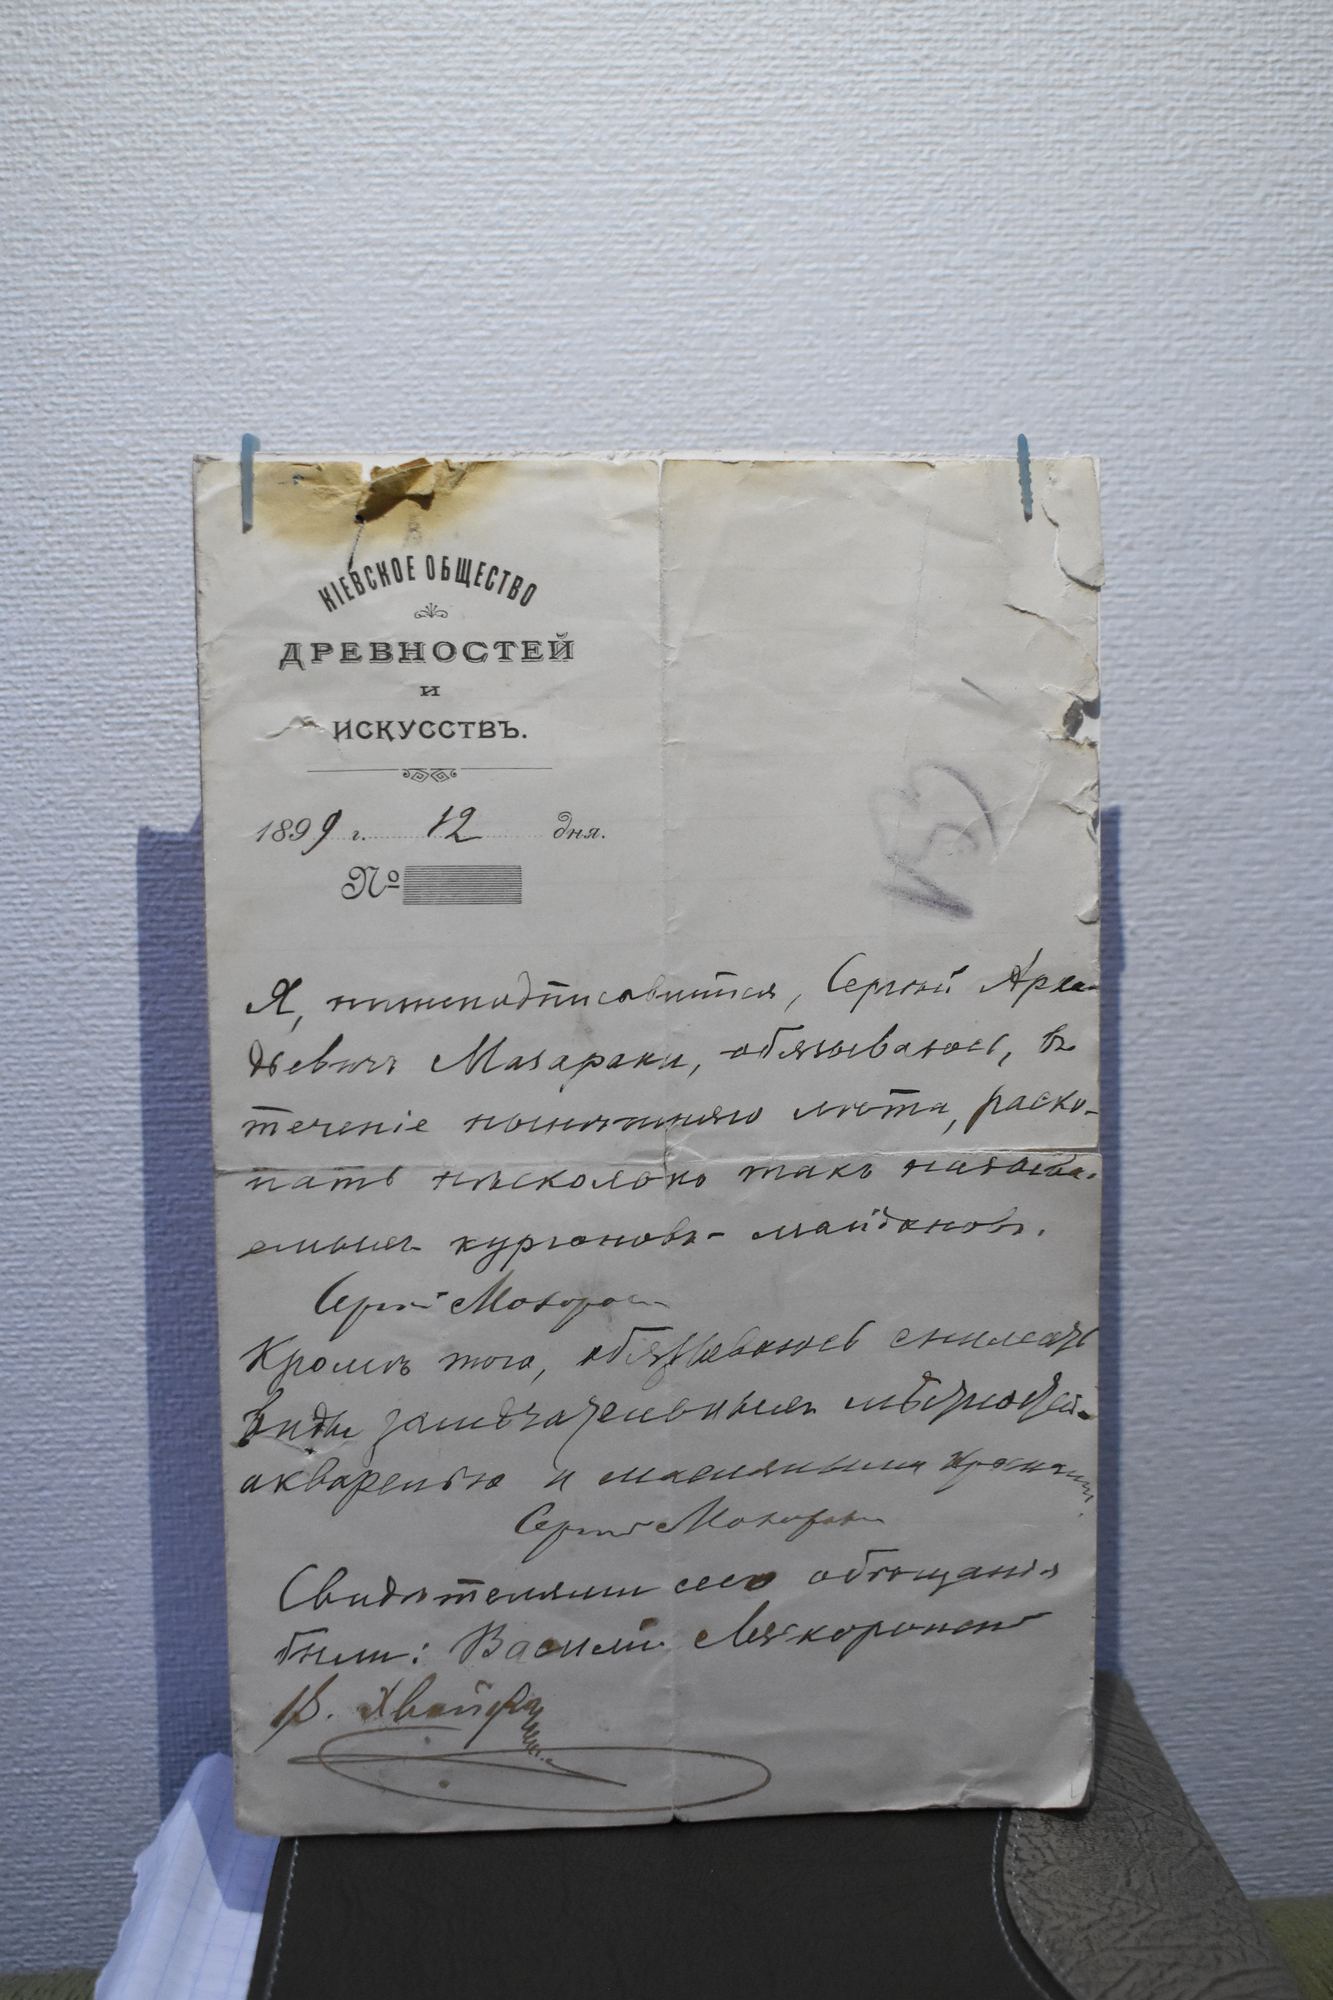 КІЕВСКОЕ ОБЩЕСТВО
ДРЕВНОСТЕЙ
И
ИСКУССТВЪ.
1899 г. 12 дня.
№
Я, нижеподписавшійся, Сергѣй Арка-
дьевичъ Мазараки, обязываюсь, въ
теченіе нынѣшняго лѣта, раско-
пать нѣсколько такъ называ-
емыхъ кургановъ-майдановъ.
Сергѣй Мазараки
Кромѣ того, обязываюсь снимать
виды замѣчательныхъ мѣстностей
акварелью и масляными красками.
Сергѣй Мазараки
Свидѣтелями сего обѣщанія
были: Василій Ляскоронскій
В. Хвойка